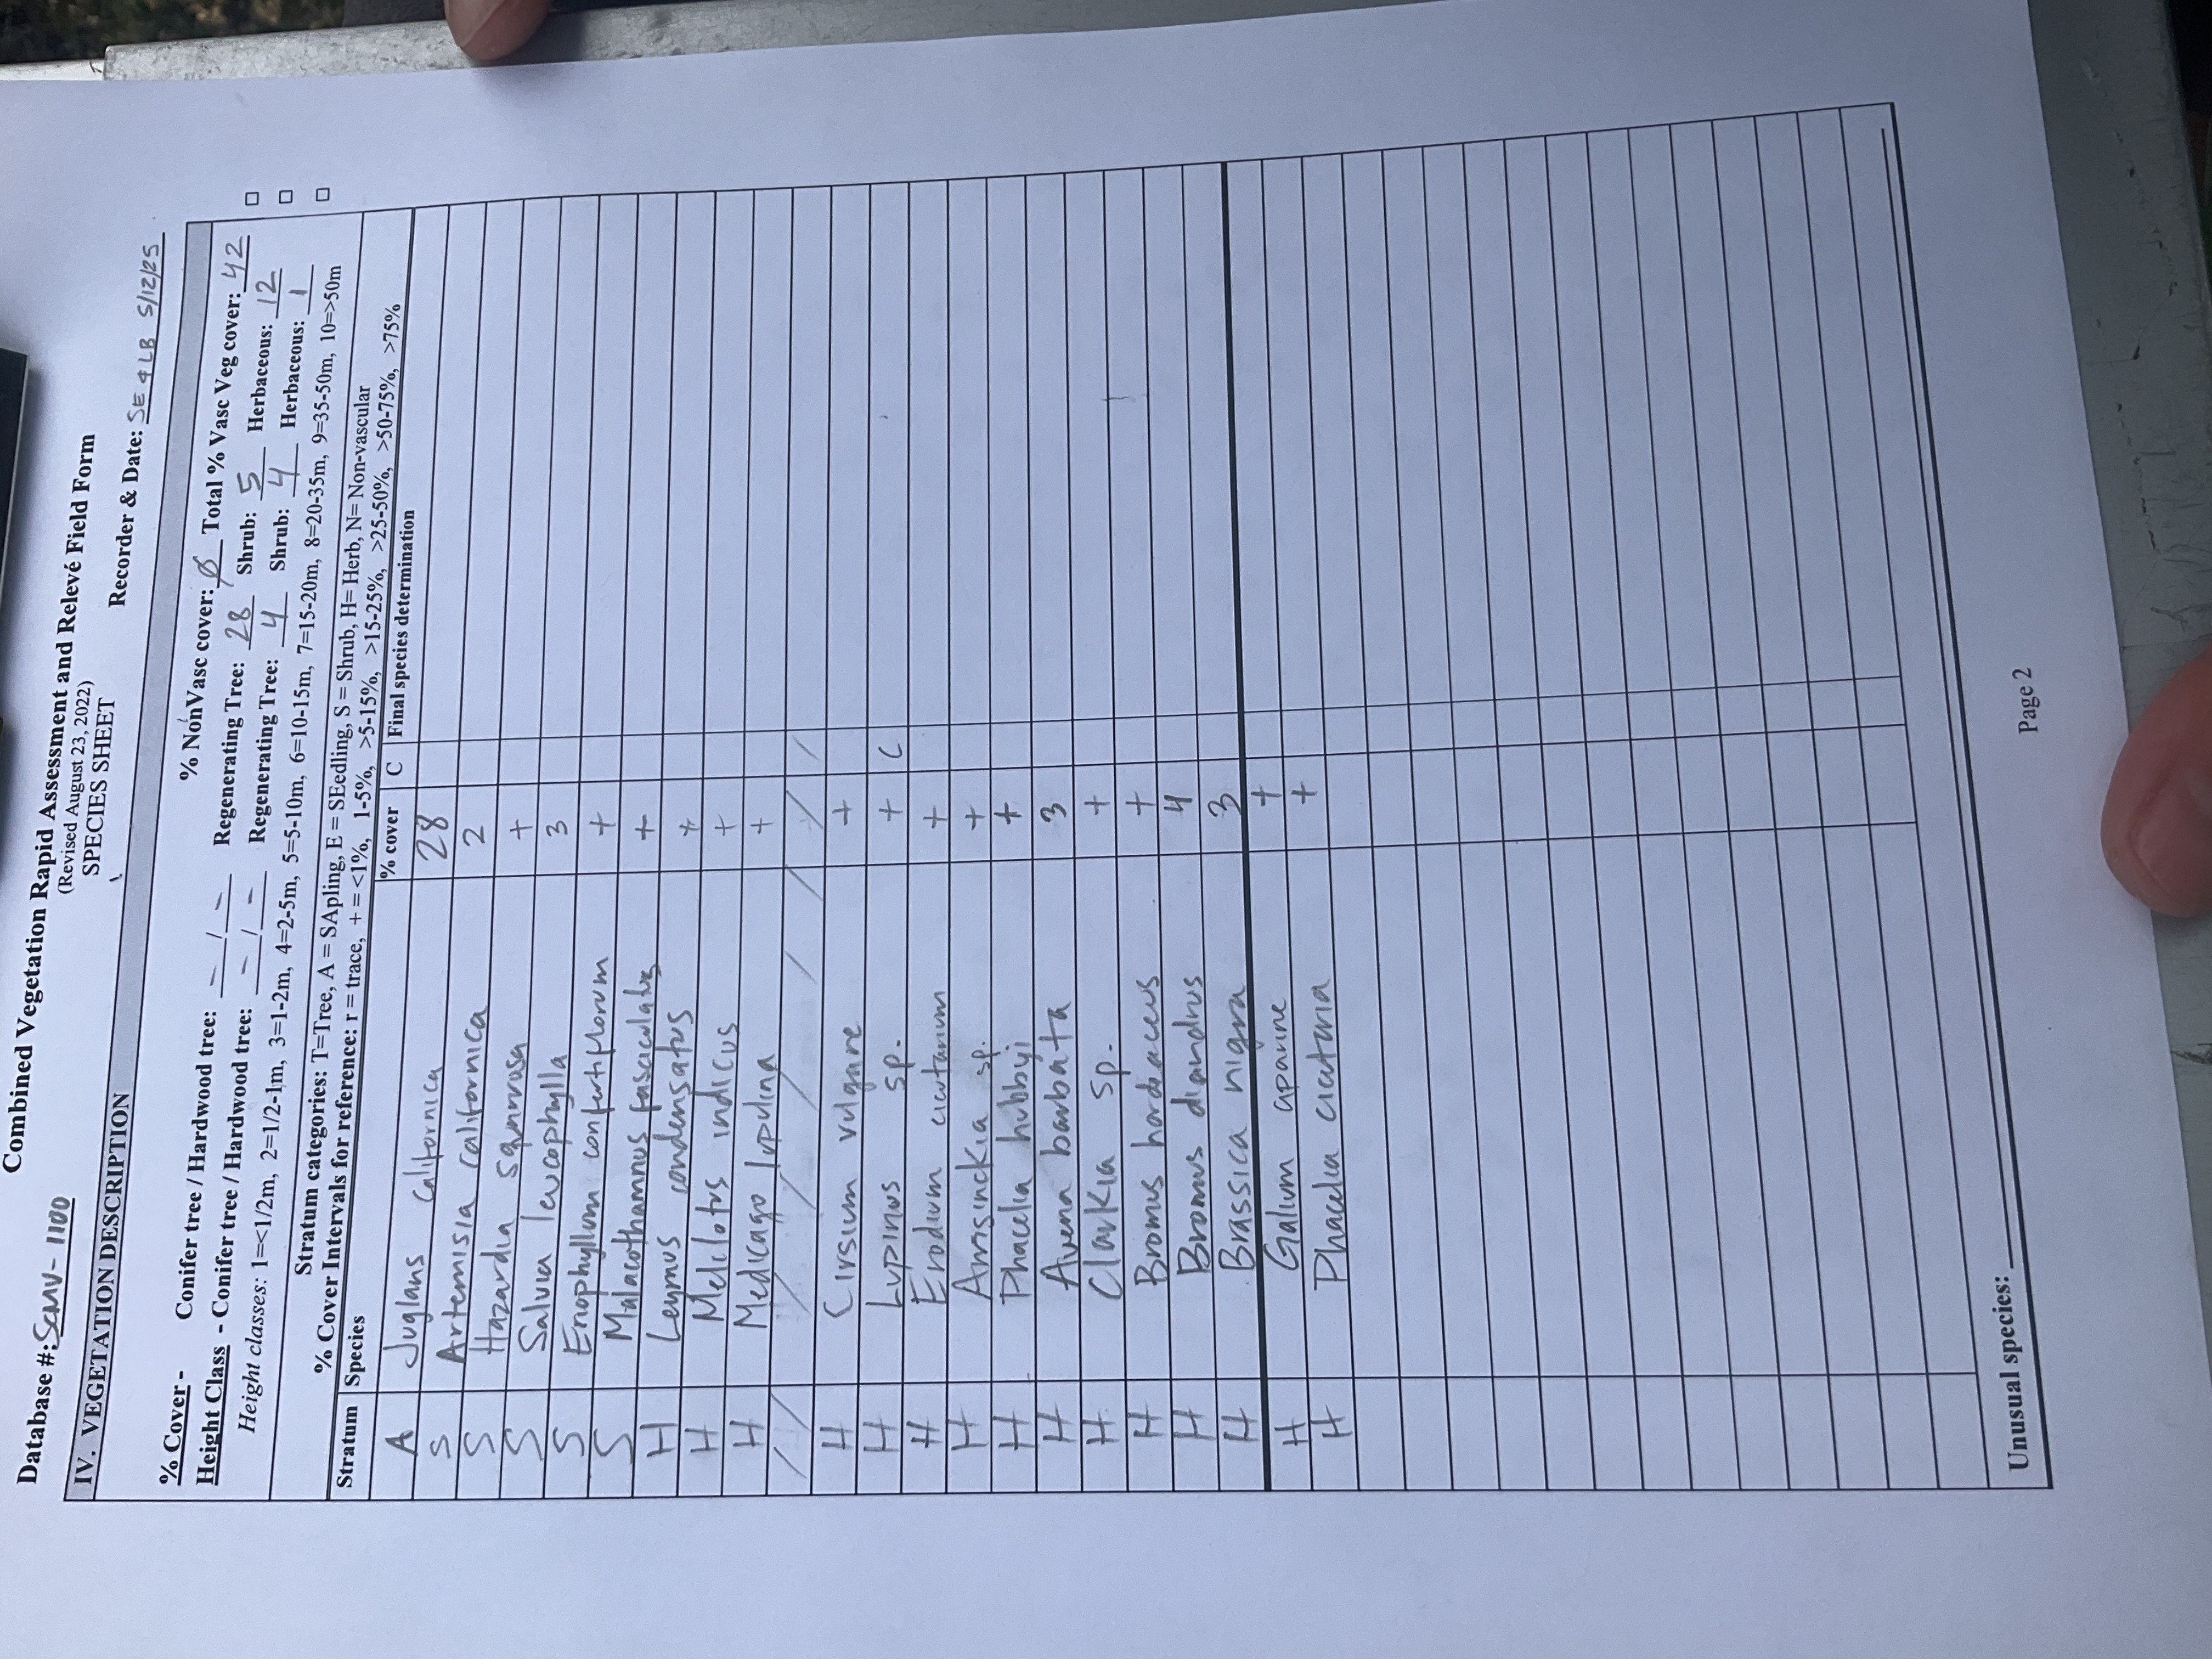 Combined Vegetation Rapid Assessment and Relevé Field Form
(Revised August 23, 2022)
SPECIES SHEET
Database #: SCMV-1100 Recorder & Date: SE & LB 5/12/25
IV. VEGETATION DESCRIPTION
% NonVasc cover: Ø Total % Vasc Veg cover: 42
% Cover - Conifer tree / Hardwood tree: - / - Regenerating Tree: 28 Shrub: 5 Herbaceous: 12
Height Class - Conifer tree / Hardwood tree: - / - Regenerating Tree: 4 Shrub: 4 Herbaceous: 1
Height classes: 1=<1/2m, 2=1/2-1m, 3=1-2m, 4=2-5m, 5=5-10m, 6=10-15m, 7=15-20m, 8=20-35m, 9=35-50m, 10=>50m
Stratum categories: T=Tree, A = SApling, E = SEedling, S = Shrub, H= Herb, N= Non-vascular
% Cover Intervals for reference: r = trace, + = <1%, 1-5%, >5-15%, >15-25%, >25-50%, >50-75%, >75%
Stratum Species % cover C Final species determination
A Juglans californica 28
S Artemisia californica 2
S Hazardia squarrosa +
S Salvia leucophylla 3
S Eriophyllum confertiflorum +
S Malacothamnus fasciculatus +
H Leymus condensatus +
H Melilotus indicus +
H Medicago lupulina +
H Cirsium vulgare +
H Lupinus sp. + C
H Erodium cicutarium +
H Amsinckia sp. +
H Phacelia hubbyi +
H Avena barbata 3
H Clarkia sp. +
H Bromus hordeaceus +
H Bromus diandrus 4
H Brassica nigra 3
H Galium aparine +
H Phacelia cicutaria +
Unusual species:
Page 2